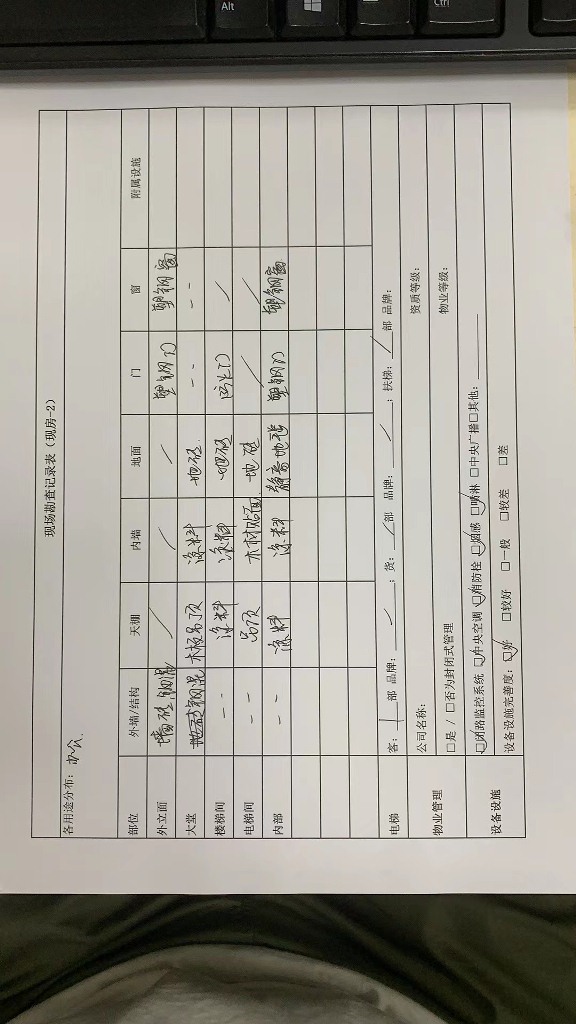 Alt
Ctrl
现场勘查记录表（现房-2）
各用途分布：办公
部位 外墙/结构 天棚 内墙 地面 门 窗 附属设施
外立面 墙砖 钢混 / / / 塑钢门 塑钢窗
大堂 钢混 木板吊顶 涂料 地砖 -- --
楼梯间 -- 涂料 涂料 地砖 防火门 /
电梯间 -- 吊顶 木材贴面 地砖 / /
内部 -- 涂料 涂料 静音地板 塑钢门 塑钢窗
电梯 客： 部 品牌： / ；货： / 部 品牌： / ；扶梯： / 部 品牌：
物业管理 公司名称： 资质等级：
□是 / □否为封闭式管理 物业等级：
设备设施 ☑闭路监控系统 ☑中央空调 ☑消防栓 ☑烟感 ☑喷淋 □中央广播 □其他：
设备设施完善度：☑好 □较好 □一般 □较差 □差